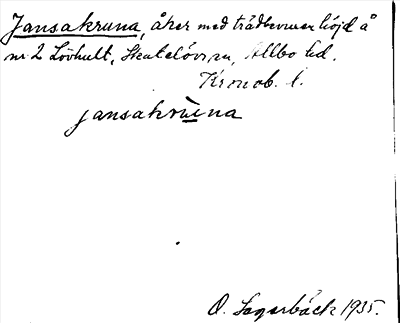 Jansakruna, åker med trädbevuxen höjd å
nr 2 Lövhult, Skatelövs sn, Allbo hd.
Kronob. l.
jansakrùna
O. Lagerbäck 1935.